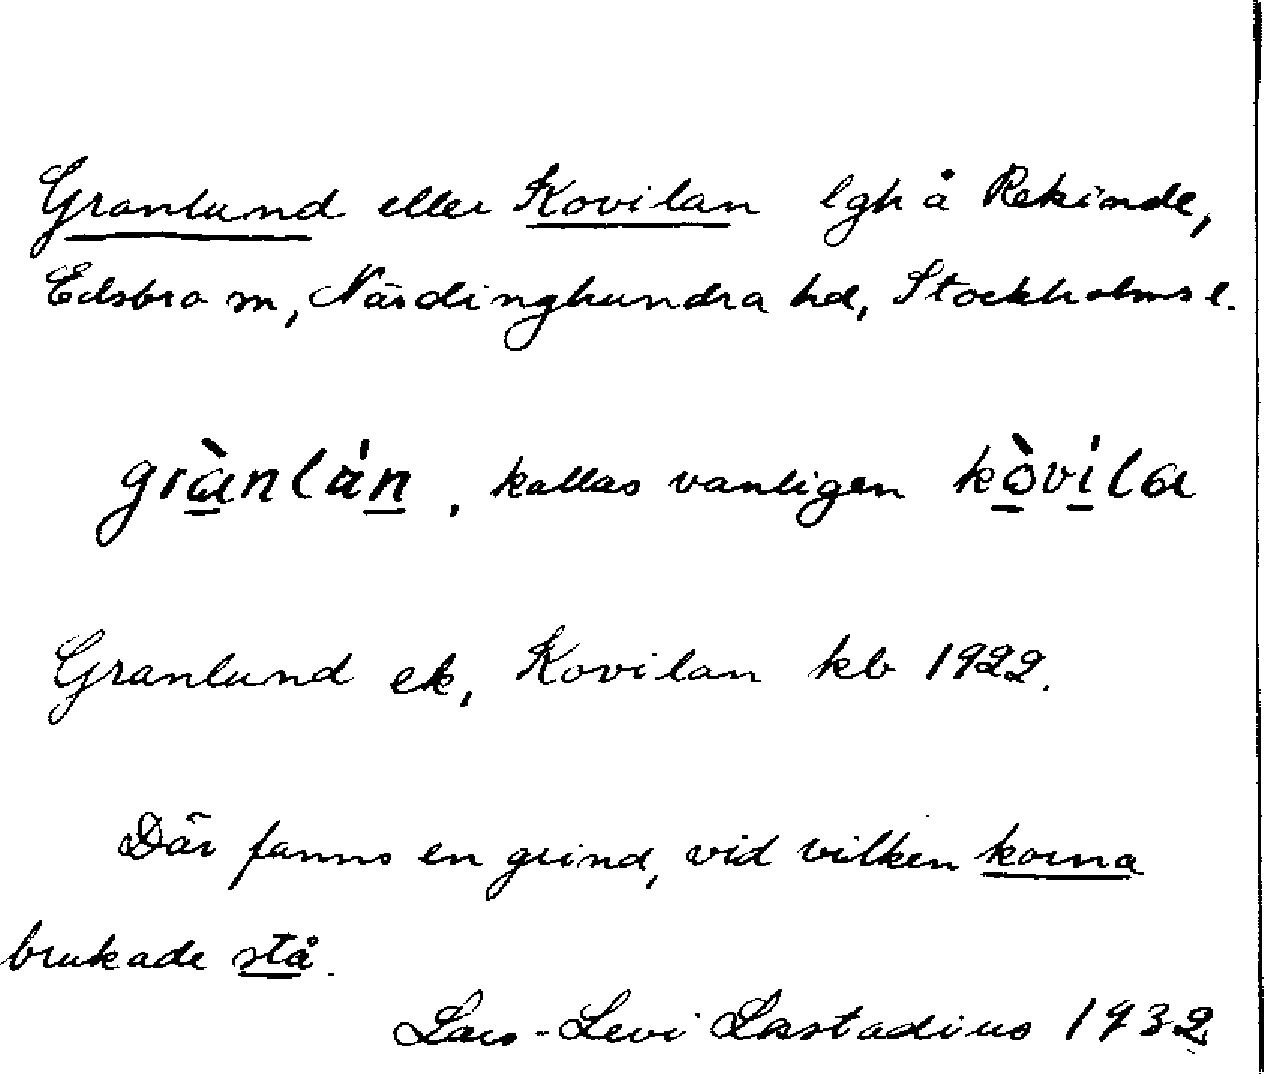 Granlund eller Kovilan lgh å Rekinde,
Edsbro sn, Närdinghundra hd, Stockholms l.
grànlán, kallas vanligen kòvíla
Granlund ek, Kovilan kb 1922.
Där fanns en grind, vid vilken korna
brukade stå.
Lars-Levi Læstadius 1932